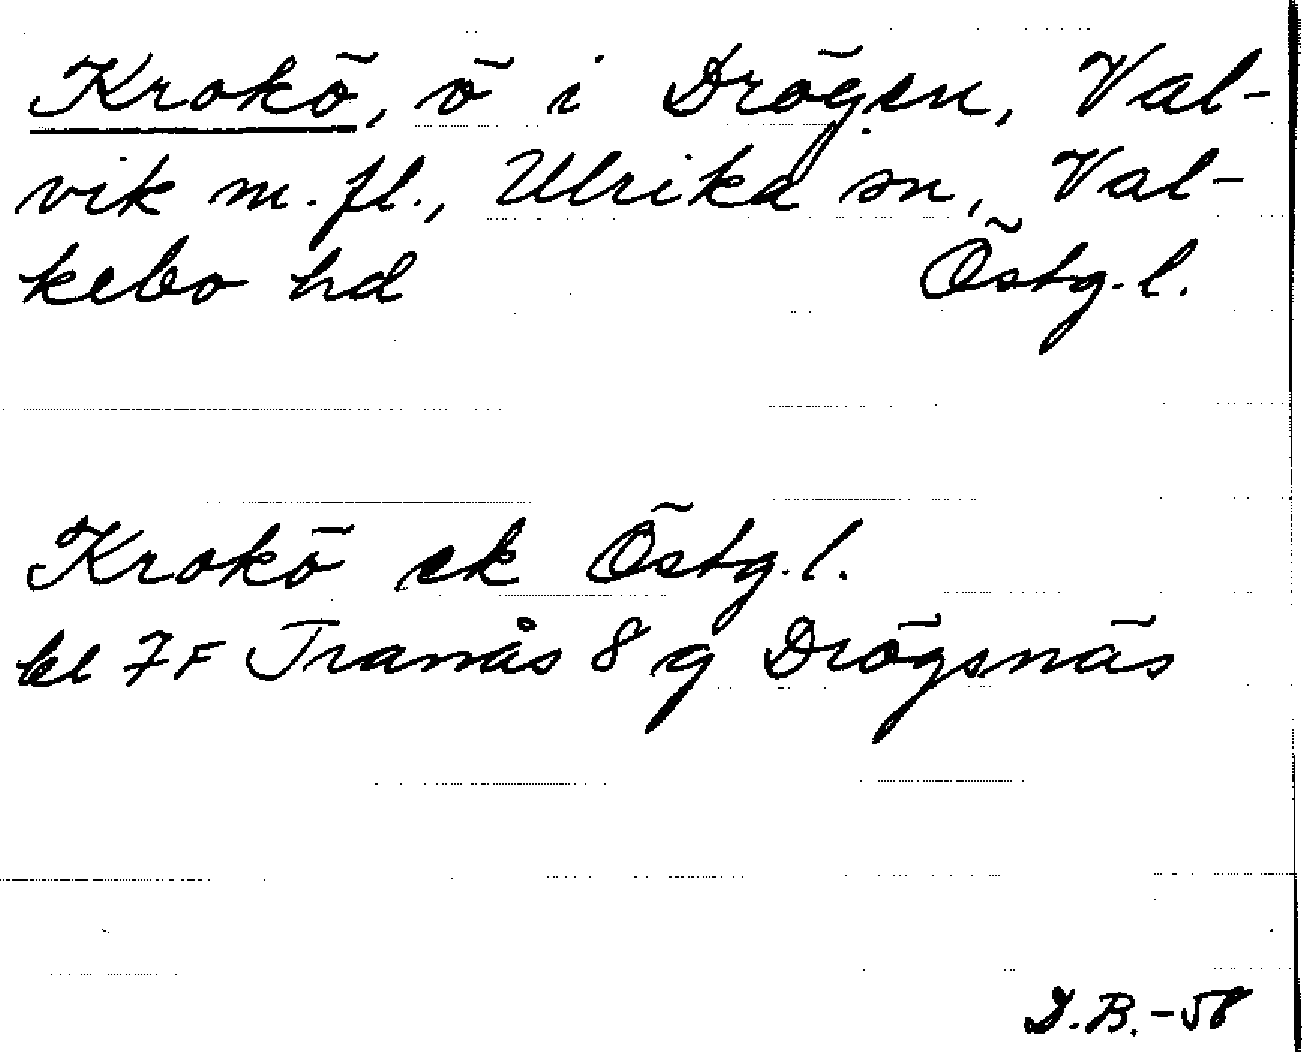 Krokö, ö i Drögen, Val-
vik m.fl., Ulrika sn, Val-
kebo hd Östg.l.
Krokö ek Östg.l.
bl 7F Tranås 8 g Drögsnäs
D.B.-58